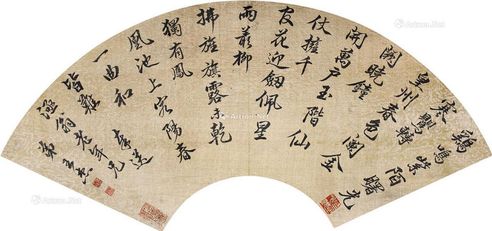 鷄鳴紫陌曙光
寒鶯囀
皇州春色闌金
闕曉鐘
開萬戶玉階仙
仗擁千
官花迎劒佩星
柳
拂旌旗露未乾
獨有鳳
凰池上客陽春
一曲和
皆難
翁老年兄
弟